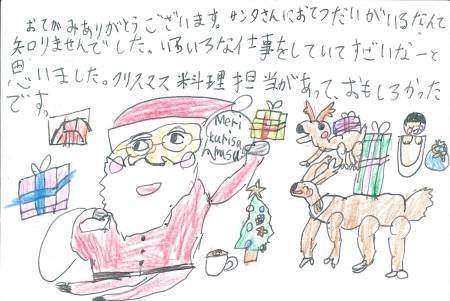 おてがみありがとうございます。サンタさんにおてつだいがいるなんて
知りませんでした。いろいろな仕事をしていてすごいなーと
思いました。クリスマス料理担当があって、おもしろかった
です。
Meri
kurisu
masu